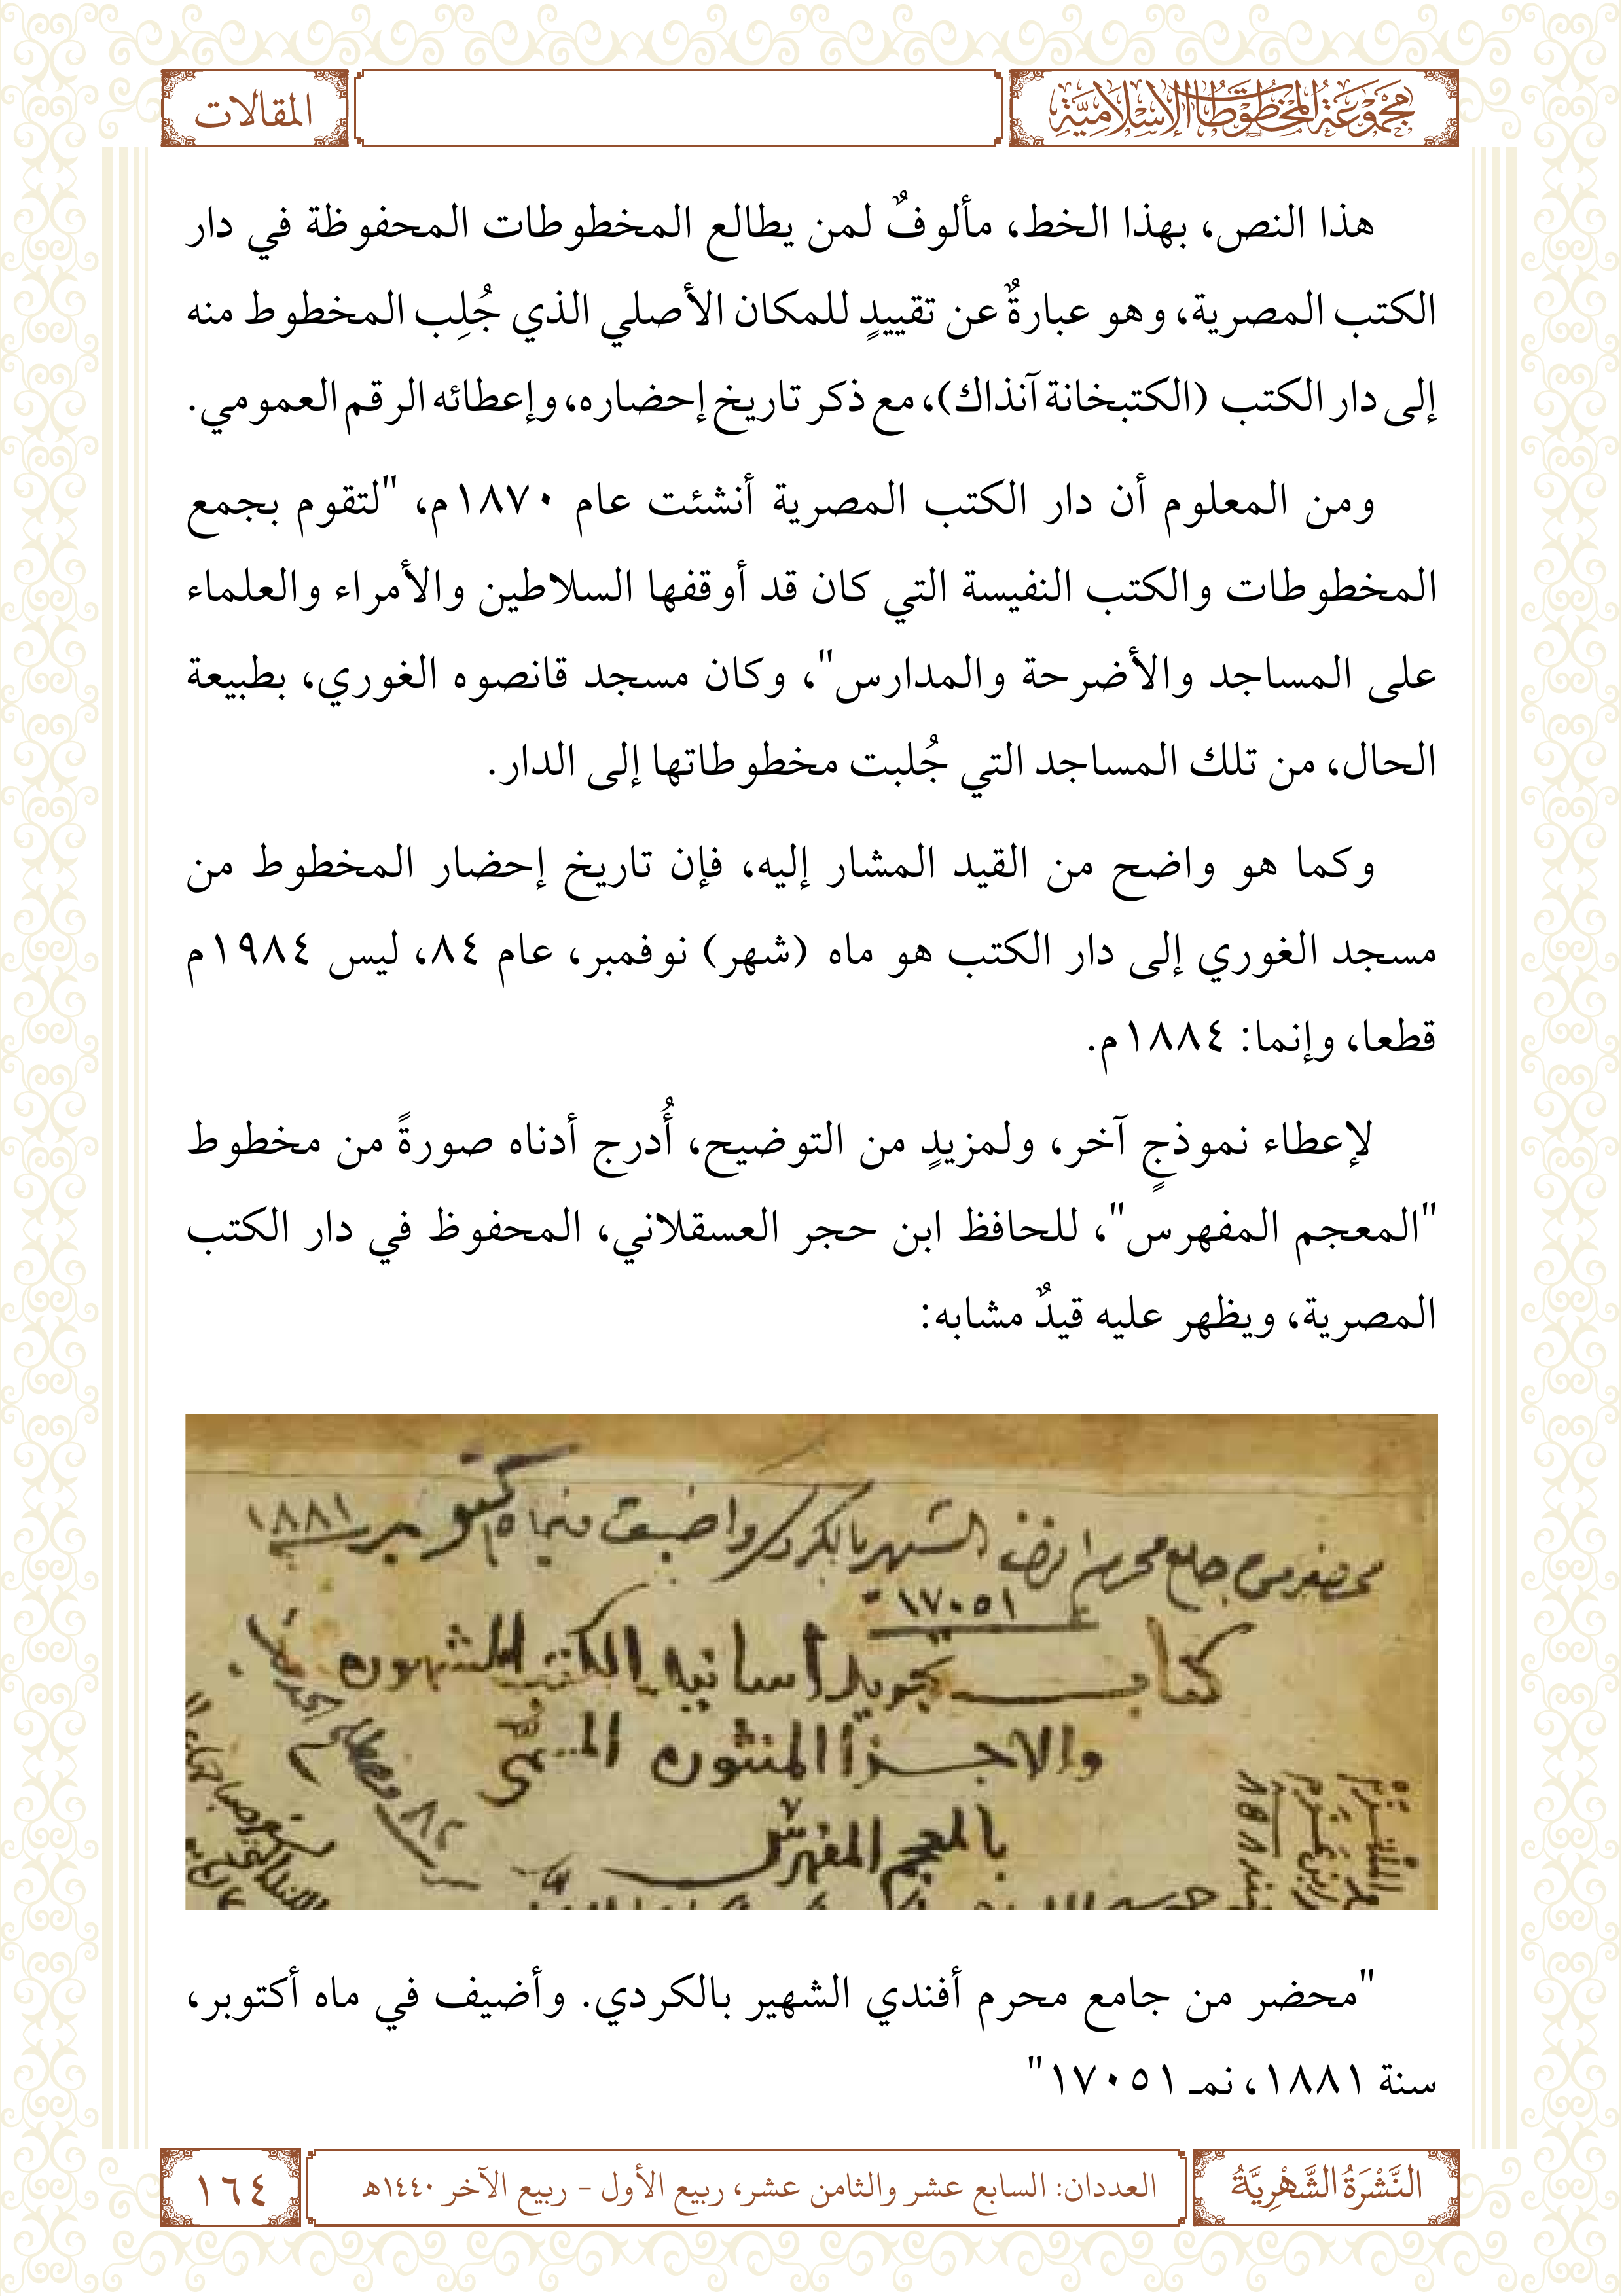 مَجْمُوْعَةُ المَخْطُوْطَاتِ الإِسْلَامِيَّةِ
المقالات
هذا النص، بهذا الخط، مألوفٌ لمن يطالع المخطوطات المحفوظة في دار
الكتب المصرية، وهو عبارةٌ عن تقييدٍ للمكان الأصلي الذي جُلِب المخطوط منه
إلى دار الكتب (الكتبخانة آنذاك)، مع ذكر تاريخ إحضاره، وإعطائه الرقم العمومي.
ومن المعلوم أن دار الكتب المصرية أنشئت عام ١٨٧٠م، "لتقوم بجمع
المخطوطات والكتب النفيسة التي كان قد أوقفها السلاطين والأمراء والعلماء
على المساجد والأضرحة والمدارس"، وكان مسجد قانصوه الغوري، بطبيعة
الحال، من تلك المساجد التي جُلبت مخطوطاتها إلى الدار.
وكما هو واضح من القيد المشار إليه، فإن تاريخ إحضار المخطوط من
مسجد الغوري إلى دار الكتب هو ماه (شهر) نوفمبر، عام ٨٤، ليس ١٩٨٤م
قطعا، وإنما: ١٨٨٤م.
لإعطاء نموذجٍ آخر، ولمزيدٍ من التوضيح، أُدرج أدناه صورةً من مخطوط
"المعجم المفهرس"، للحافظ ابن حجر العسقلاني، المحفوظ في دار الكتب
المصرية، ويظهر عليه قيدٌ مشابه:
محضر من جامع محرم افندى الشهير بالكردى واضيف فى ماه اكتوبر ١٨٨١
١٧٠٥١
كتاب تجريد اسانيد الكتب المشهوره
والاجزا المنثوره المسمى
بالمعجم المفهرس
"محضر من جامع محرم أفندي الشهير بالكردي. وأضيف في ماه أكتوبر،
سنة ١٨٨١، نمـ ١٧٠٥١"
النَّشْرَةُ الشَّهْرِيَّةُ
العددان: السابع عشر والثامن عشر، ربيع الأول - ربيع الآخر ١٤٤٠هـ
١٦٤